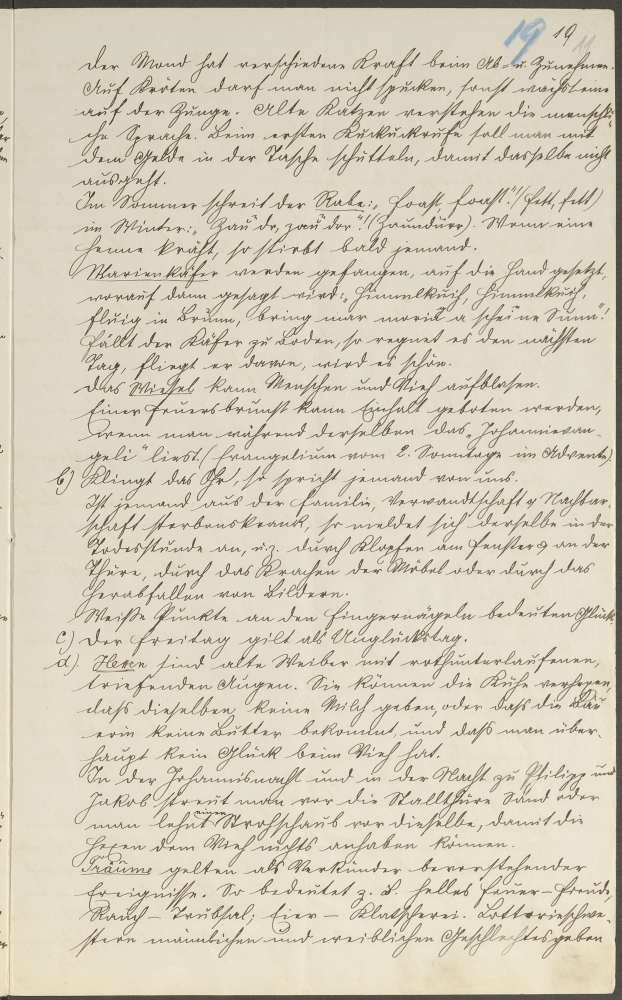 19 19
Der Mond hat verschiedene Kraft beim Ab- u. Zunehmen.
Auf Kröten darf man nicht spucken, sonst wächst eine
auf der Zunge. Alte Katzen verstehen die menschli-
che Sprache. Beim ersten Kukukrufe soll man mit
dem Gelde in der Tasche schütteln, damit dasselbe nicht
ausgeht.
Im Sommer schreit der Rabe: „Foast, foast"! (fett, fett)
im Winter: „Zau' dr, zau' drr"! (Zaundürr). Wenn eine
Henne kräht, so stirbt bald jemand.
Marienkäfer werden gefangen, auf die Hand gesetzt,
worauf dann gesagt wird: „Himmelkuih, Himmelkuih,
fluig in Brunn, bring mar moring a scheine Sunn"!
Fällt der Käfer zu Boden, so regnet es den nächsten
Tag, fliegt er davon, wird es schön.
Das Wiesel kann Menschen und Vieh aufblasen.
Einer Feuersbrunst kann Einhalt geboten werden,
wenn man während derselben das „Johannisevan-
geli" liest. (Evangelium vom 2. Sonntage im Advente).
b) Klingt das Ohr, so spricht jemand von uns.
Ist jemand aus der Familie, Verwandtschaft od. Nachbar-
schaft sterbenskrank, so meldet sich derselbe in der
Todesstunde an, u. z. durch Klopfen am Fenster od. an der
Thüre, durch das Krachen der Möbel oder durch das
Herabfallen von Bildern.
Weiße Punkte an den Fingernägeln bedeuten Glück.
c) Der Freitag gilt als Unglückstag.
d) Hexen sind alte Weiber mit rothunterlaufenen,
triefenden Augen. Sie können die Kühe verhexen,
daß dieselben keine Milch geben, oder daß die Bäu-
erin keine Butter bekommt, und daß man über-
haupt kein Glück beim Vieh hat.
In der Johannisnacht und in der Nacht zu Philipp und
Jakob streut man vor die Stallthüre Sand oder
man lehnt einen Strohschaub vor dieselbe, damit die
Hexen dem Vieh nichts anhaben können.
Träume gelten als Verkünder bevorstehender
Ereignisse. So bedeutet z. B. helles Feuer – Freude,
Rauch – Trübsal; Eier – Klatscherei. Lotterieschwe-
stern männlichen und weiblichen Geschlechtes geben